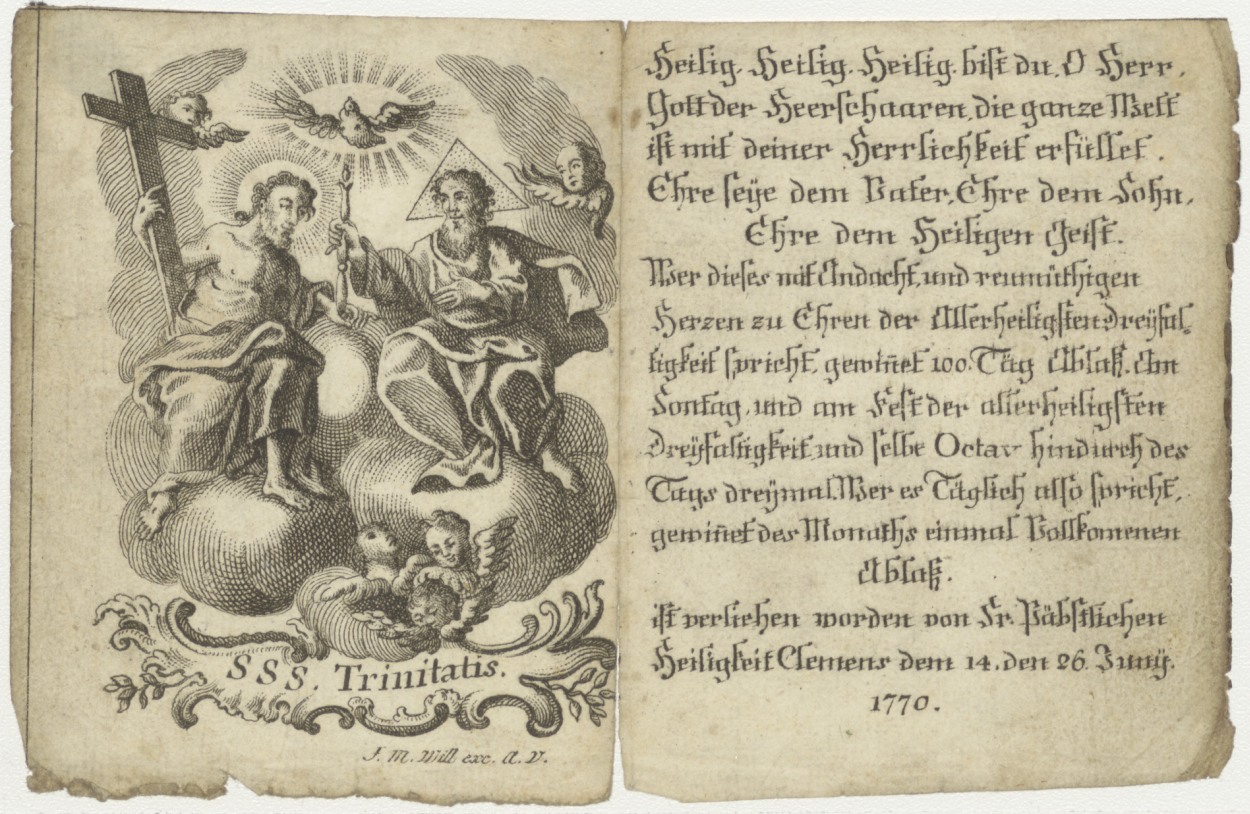 SSS. Trinitatis.
J. M. Will exc. A. V.
Heilig. Heilig. Heilig. bist du. O Herr.
Gott der Heerschaaren, die ganze Welt
ist mit deiner Herrlichkeit erfüllet.
Ehre seÿe dem Vater, Ehre dem Sohn,
Ehre dem Heiligen Geist.
Wer dieses mit Andacht, und reumüthigen
Herzen zu Ehren der Allerheiligsten Dreÿfal-
tigkeit spricht, gewiñet 100. Täg Ablaß. Am
Sontag, und am Fest der allerheiligsten
Dreÿfaltigkeit, und selbe Octav hindurch des
Tags dreÿmal. Wer es Täglich also spricht,
gewiñet des Monaths einmal Vollkom̄enen
Ablaß.
ist verliehen worden von Sr. Päbstlichen
Heiligkeit Clemens dem 14. den 26. Junÿ.
1770.